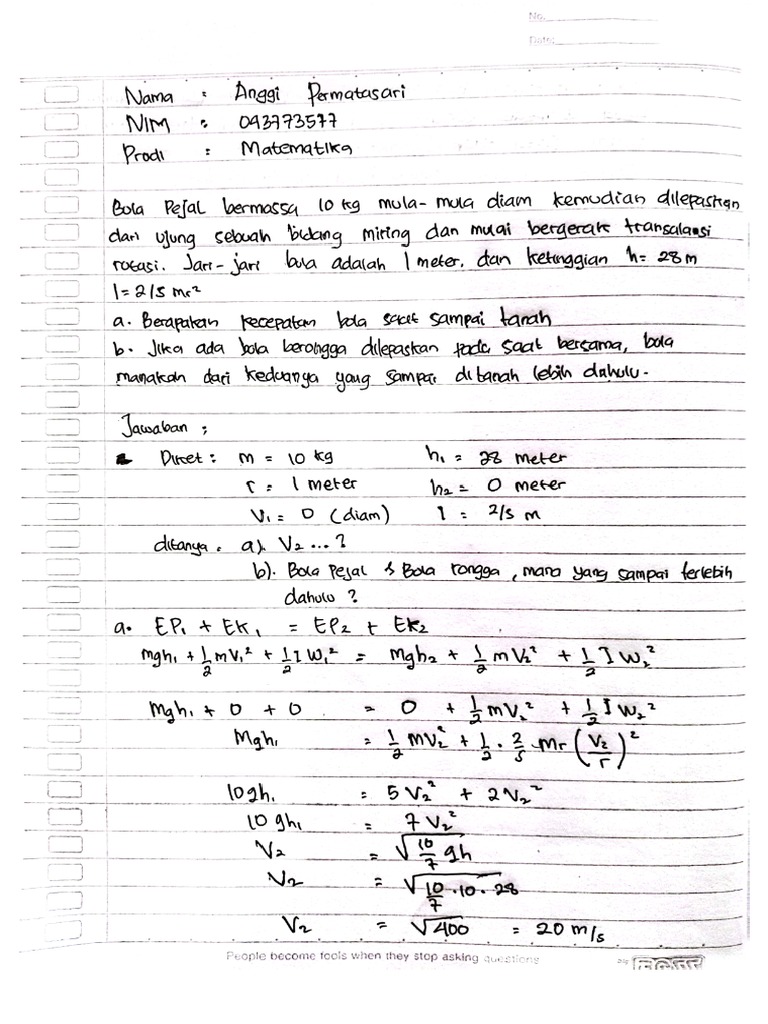 No.
Date:
Nama : Anggi Permatasari
NIM : 093773577
Prodi : Matematika
Bola Pejal bermassa 10 kg mula-mula diam kemudian dilepaskan
dari ujung sebuah bidang miring dan mulai bergerak transalansi
rotasi. Jari-jari bola adalah 1 meter, dan ketinggian h = 28 m
I = 2/5 mr²
a. Berapakah kecepatan bola saat sampai tanah
b. Jika ada bola berongga dilepaskan pada saat bersama, bola
manakah dari keduanya yang sampai di tanah lebih dahulu.
Jawaban ;
Diket : m = 10 kg h₁ = 28 meter
r = 1 meter h₂ = 0 meter
V₁ = 0 (diam) I = 2/5 m
ditanya : a). V₂ ...?
b). Bola Pejal & Bola rongga, mana yang sampai terlebih
dahulu ?
a. EP₁ + EK₁ = EP₂ + EK₂
mgh₁ + 1/2 mV₁² + 1/2 I W₁² = Mgh₂ + 1/2 mV₂² + 1/2 I W₂²
Mgh₁ + 0 + 0 = 0 + 1/2 mV₂² + 1/2 I W₂²
Mgh₁ = 1/2 mV₂² + 1/2 · 2/5 Mr (V₂/r)²
10gh₁ = 5V₂² + 2V₂²
10gh₁ = 7V₂²
V₂ = √(10/7 gh)
V₂ = √(10/7 · 10 · 28)
V₂ = √400 = 20 m/s
People become fools when they stop asking questions